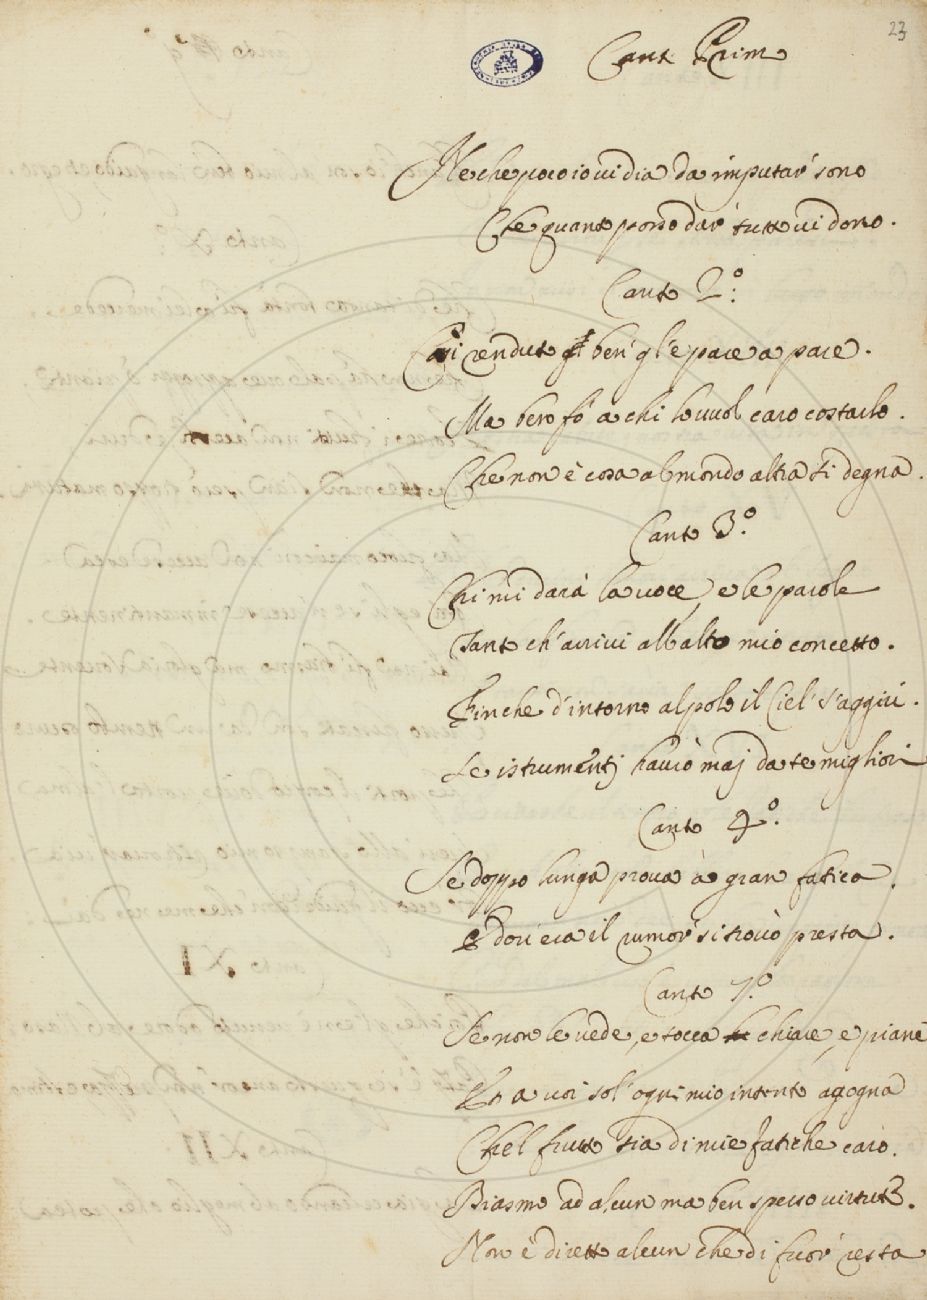 23
Canto Primo
Ne che poco io vi dia da imputar' sono
Che quanto posso dar' tutto vi dono.
Canto 2.º
Ma però fo' a chi lo vuol caro costarlo.
Che non è cosa al mondo altra sì degna.
Canto 3.º
Chi mi darà la voce, e le parole
Tanto ch'arrivi all'alto mio concetto.
Finche d'intorno al polo il Ciel' s'aggiri.
Se istrumentj havrò maj da te migliori
Canto 4.º
Se doppo lunga prova à gran fatica.
E dov'era il rumor' si trovò presta.
Canto 7.º
Se non le vede, e tocca chiare, e piane
Et a voi sol' ogni mio intento agogna
Chel frutto sia di mie fatiche caro.
Biasmo ad alcun ma ben spesso virtute.
Non è diretto alcun che di fuor' resta